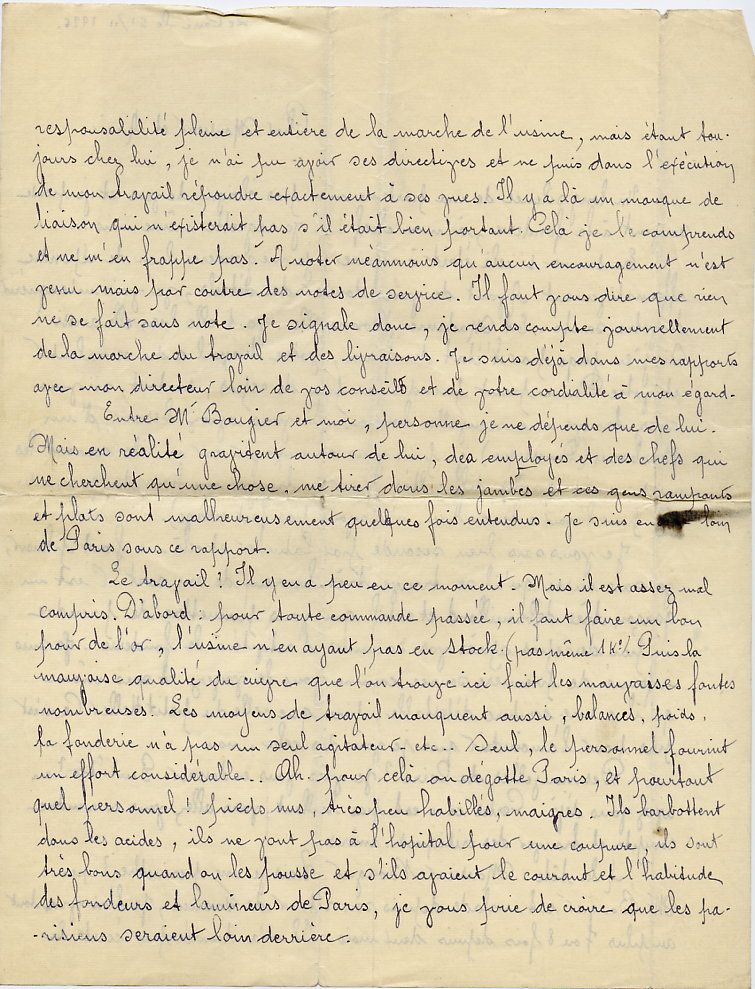 responsabilité pleine et entière de la marche de l'usine, mais étant tou-
jours chez lui, je n'ai pu avoir ses directives et ne puis dans l'exécution
de mon travail répondre exactement à ses vues. Il y a là un manque de
liaison qui n'existerait pas s'il était bien portant. Celà je le comprends
et ne m'en frappe pas. A noter néanmoins qu'aucun encouragement n'est
venu mais par contre des notes de service. Il faut vous dire que rien
ne se fait sans note. Je signale donc, je rends compte journellement
de la marche du travail et des livraisons. Je suis déjà dans mes rapports
avec mon directeur loin de vos conseils et de votre cordialité à mon égard.
Entre Mr Bougier et moi, personne je ne dépends que de lui.
Mais en réalité gravitent autour de lui, des employés et des chefs qui
ne cherchent qu'une chose, me tirer dans les jambes et ces gens rampants
et plats sont malheureusement quelques fois entendus. Je suis loin
de Paris sous ce rapport.
Le travail? Il y en a peu en ce moment. Mais il est assez mal
compris. D'abord: pour toute commande passée, il faut faire un bon
pour de l'or, l'usine n'en ayant pas en stock (pas même 1 K°/. Puis la
mauvaise qualité du cuivre que l'on trouve ici fait les mauvaises fontes
nombreuses. Les moyens de travail manquent aussi, balances, poids,
la fonderie n'a pas un seul agitateur - etc.. Seul, le personnel fournit
un effort considérable.. Ah. pour celà on dégotte Paris, et pourtant
quel personnel! pieds nus, très peu habillés, maigres. Ils barbottent
dans les acides, ils ne vont pas à l'hopital pour une coupure, ils sont
très bons quand on les pousse et s'ils avaient le courant et l'habitude
des fondeurs et lamineurs de Paris, je vous prie de croire que les pa-
-risiens seraient loin derrière.